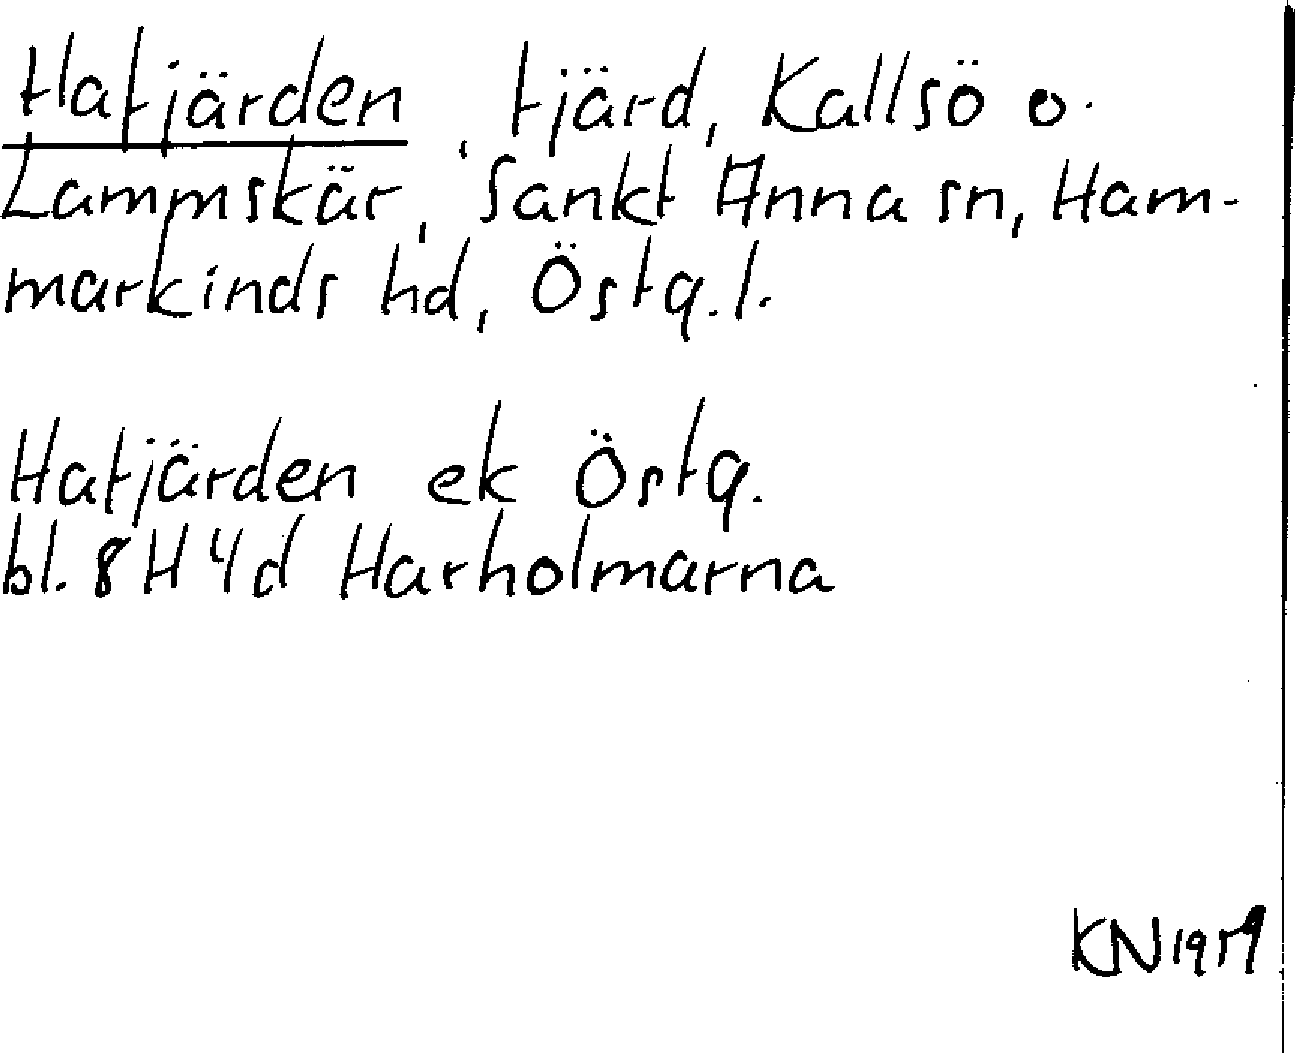 Hafjärden, fjärd, Kallsö o.
Lammskär, Sankt Anna sn, Ham-
markinds hd, Östg. l.
Hafjärden ek Östg.
bl. 8H4d Harholmarna
KN